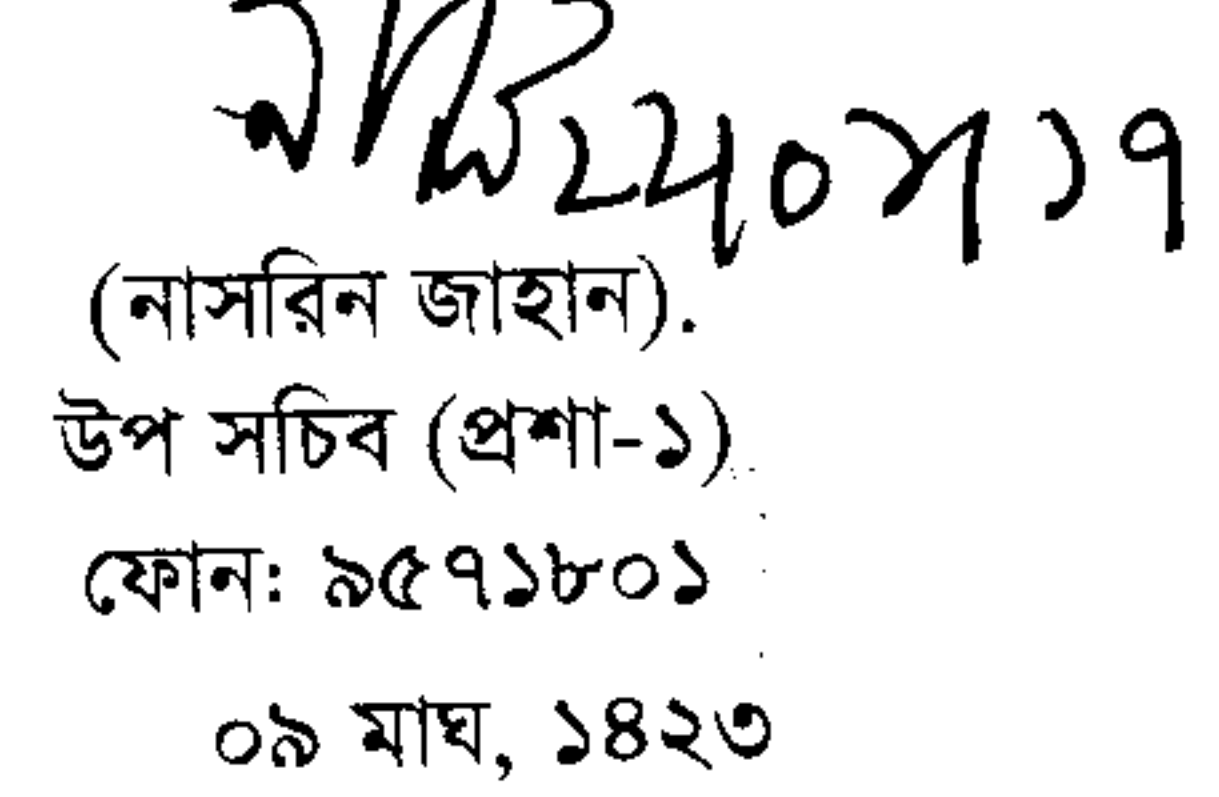 (নাসরিন জাহান).
উপ সচিব (প্রশা-১)
ফোন: ৯৫৭১৮০১
০৯ মাঘ, ১৪২৩